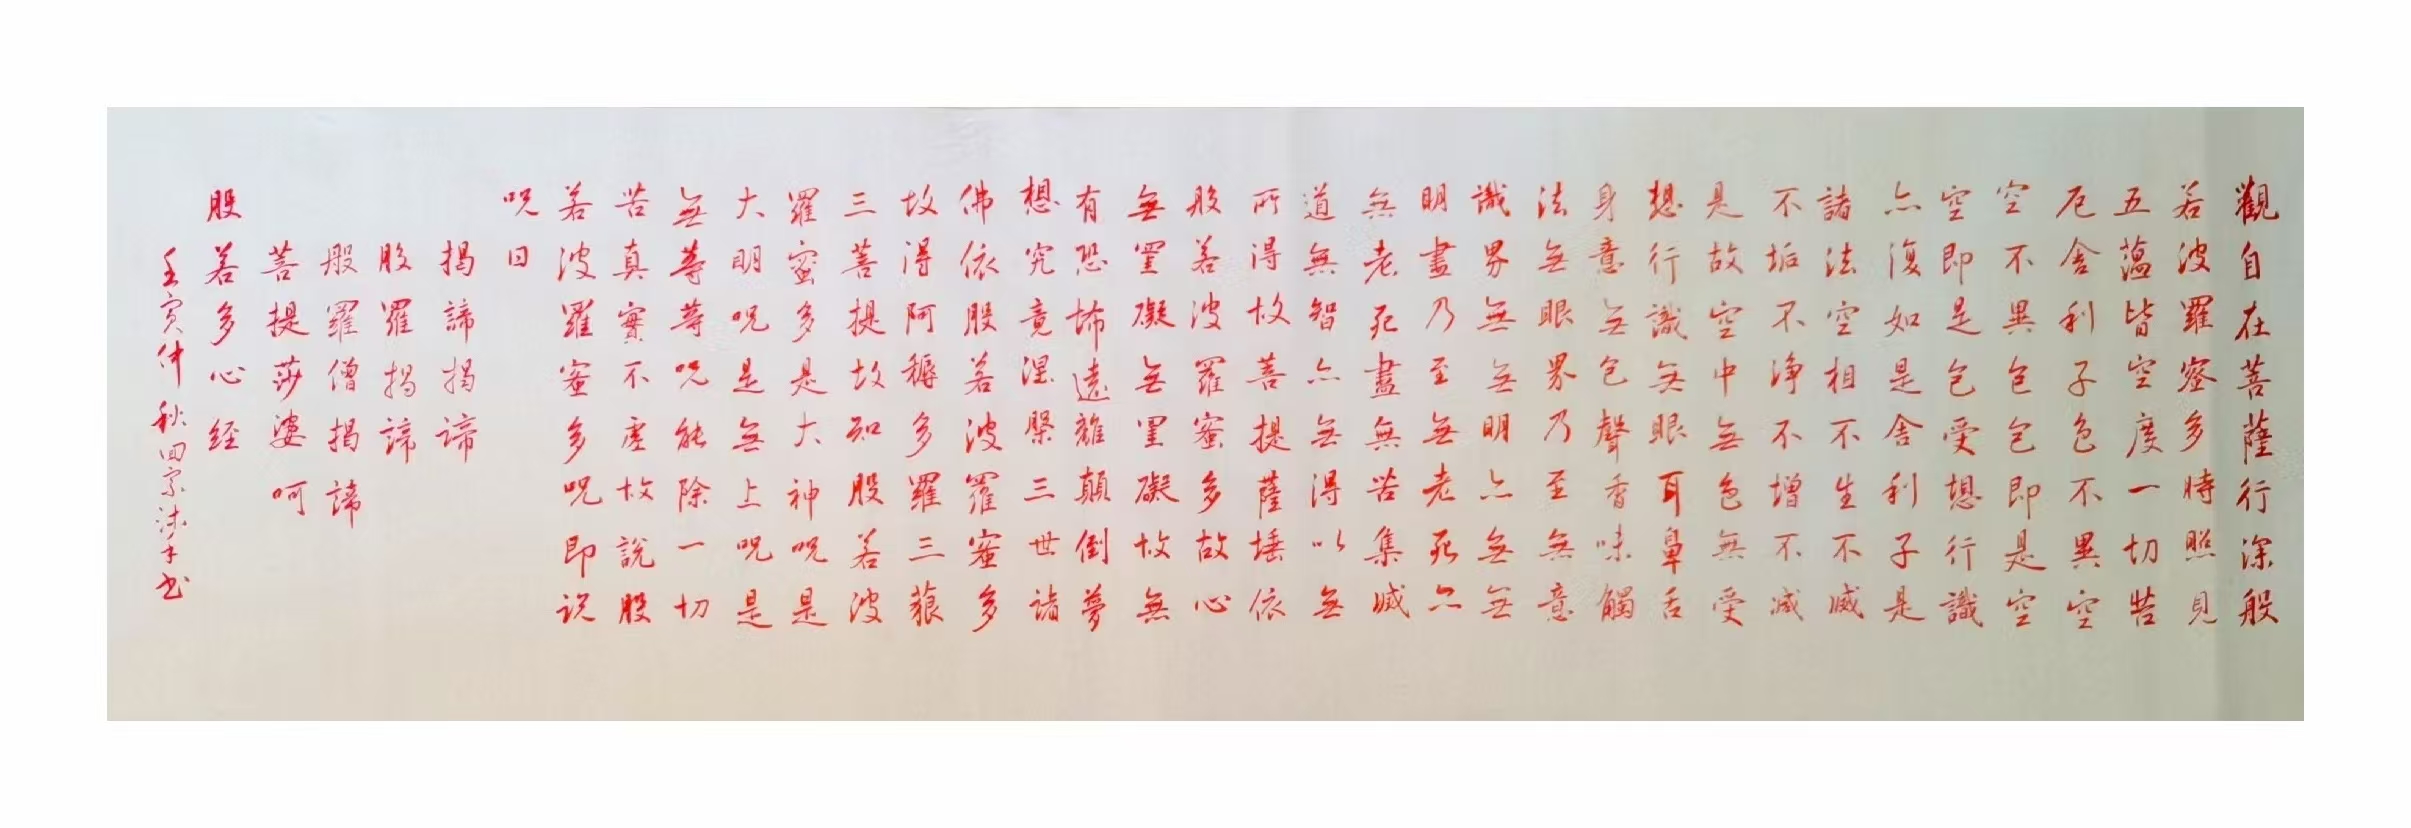 觀自在菩薩行深般
若波羅蜜多時照見
五蕰皆空度一切苦
厄舍利子色不異空
空不異色色即是空
空即是色受想行識
亦復如是舍利子是
諸法空相不生不滅
不垢不净不增不減
是故空中無色無受
想行識無眼耳鼻舌
身意無色聲香味觸
法無眼界乃至無意
識界無無明亦無無
明盡乃至無老死亦
無老死盡無苦集滅
道無智亦無得以無
所得故菩提薩埵依
般若波羅蜜多故心
無罣礙無罣礙故無
有恐怖遠離顛倒夢
想究竟涅槃三世諸
佛依般若波羅蜜多
故得阿耨多羅三藐
三菩提故知般若波
羅蜜多是大神呪是
大明呪是無上呪是
無等等呪能除一切
苦真實不虛故說般
若波羅蜜多呪即说
呪曰
揭諦揭諦
般羅揭諦
般羅僧揭諦
菩提莎婆呵
般若多心経
壬寅仲秋田宗法手书